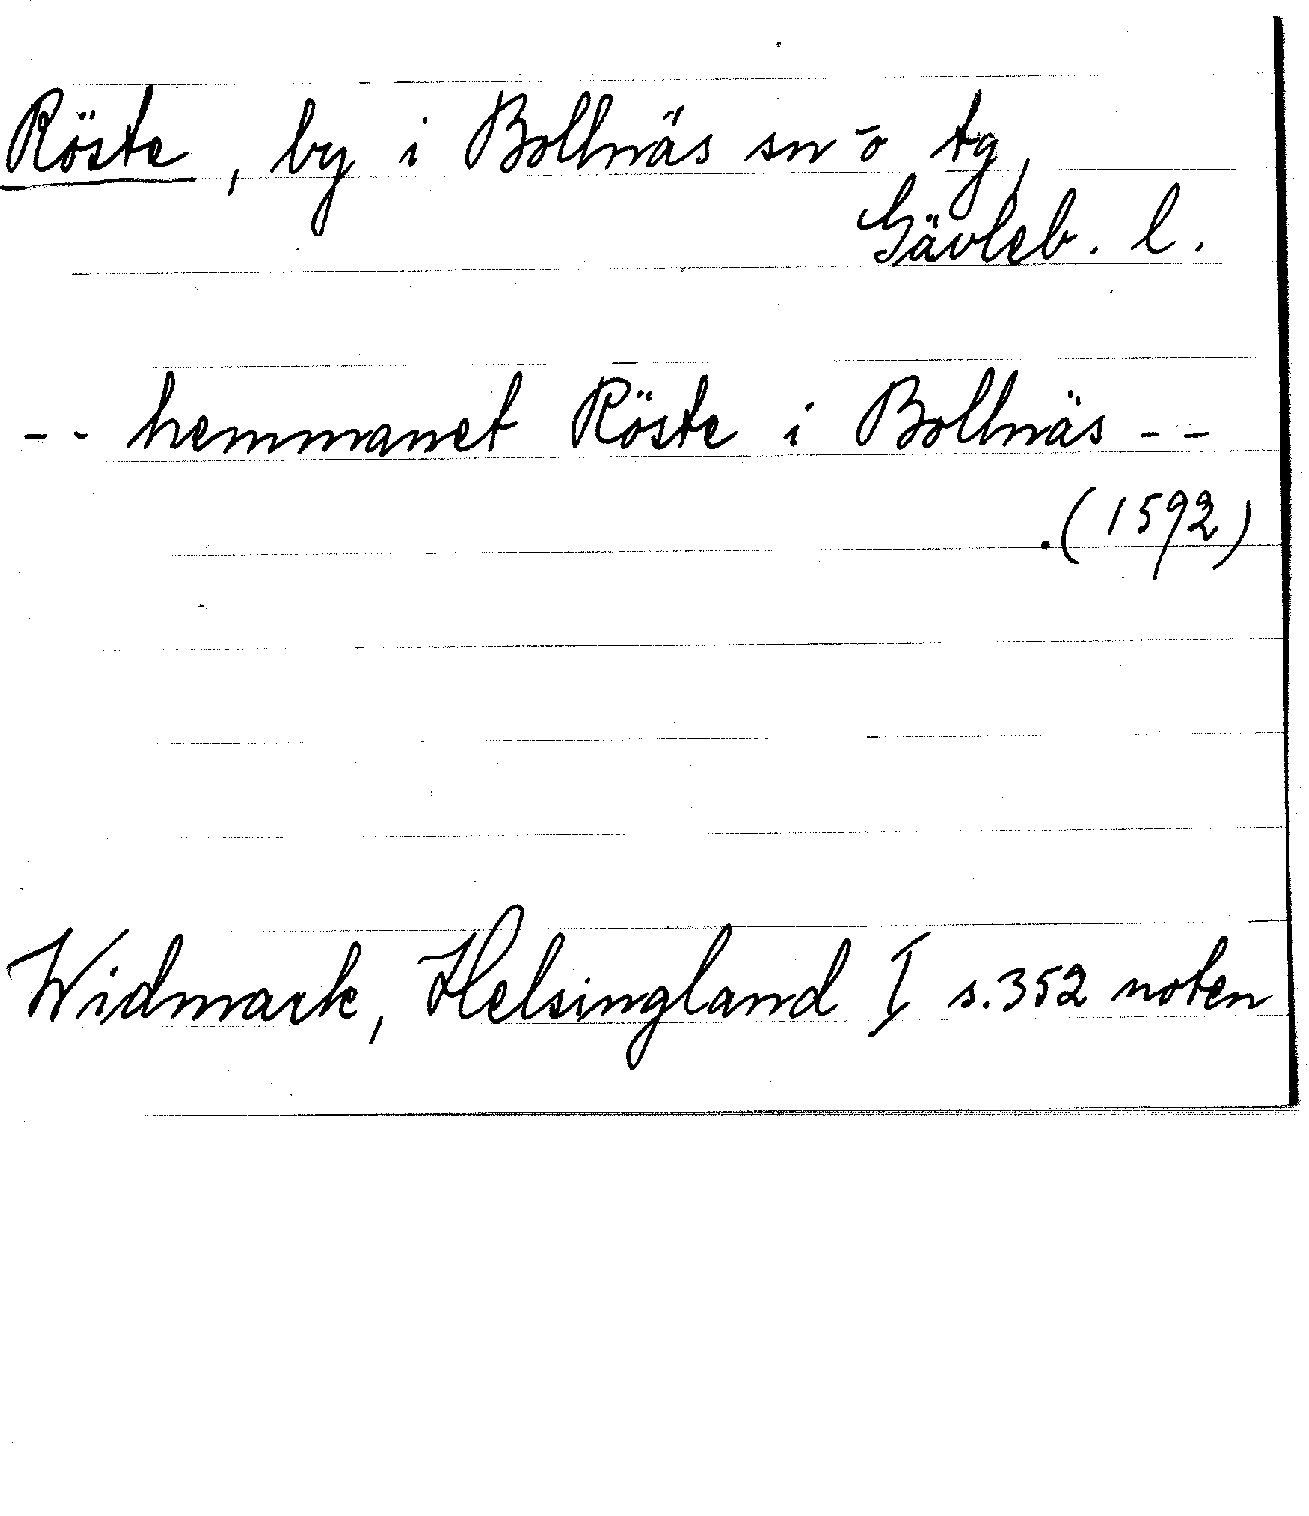 Röste, by i Bollnäs sn ō tg,
Gävleb. l.
-- hemmanet Röste i Bollnäs --
.(1592)
Widmark, Helsingland I s.352 noten